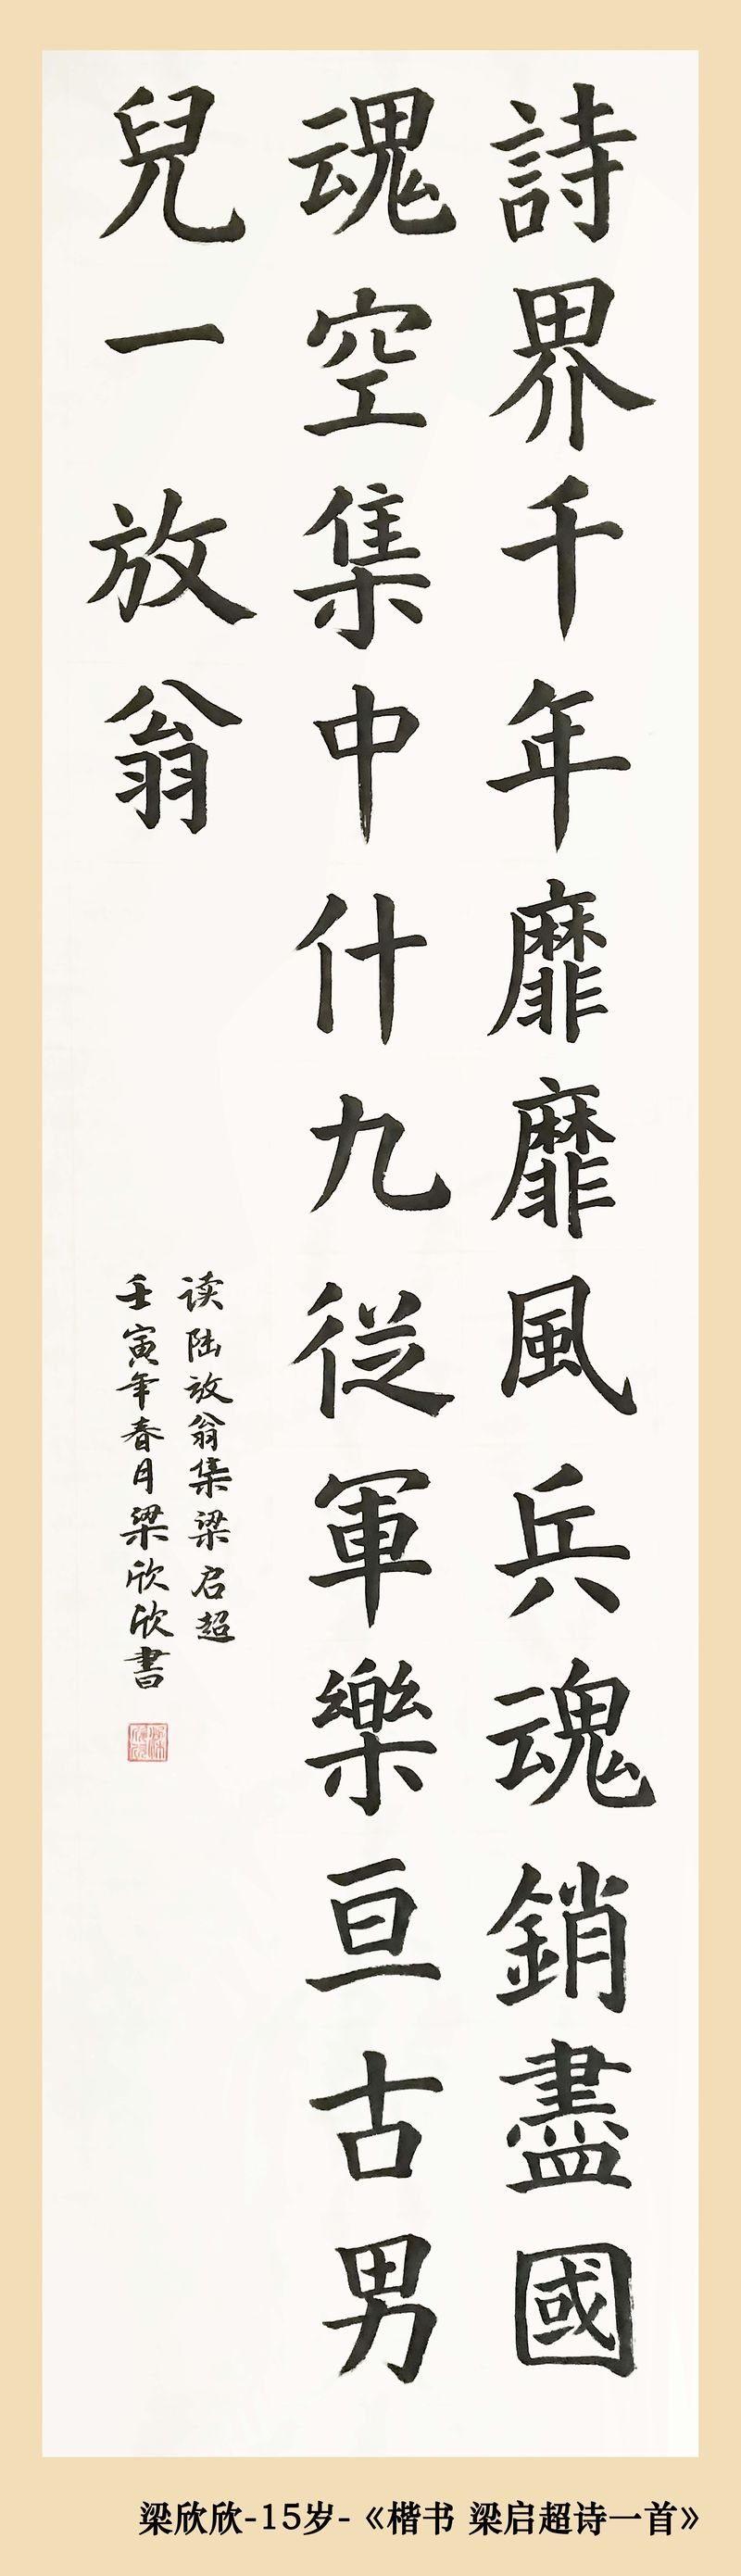 詩界千年靡靡風兵魂銷盡國
魂空集中什九從軍樂亘古男
兒一放翁
读陆放翁集梁启超
壬寅年春月梁欣欣書
梁欣欣-15岁-《楷书 梁启超诗一首》